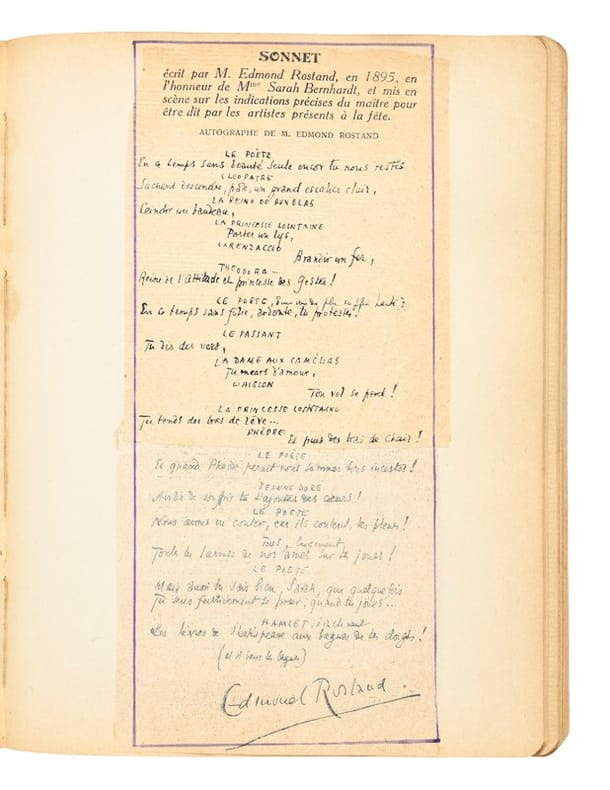 SONNET
écrit par M. Edmond Rostand, en 1895, en
l'honneur de Mme Sarah Bernhardt, et mis en
scène sur les indications précises du maître pour
être dit par les artistes présents à la fête.
AUTOGRAPHE DE M. EDMOND ROSTAND
LE POÈTE
En ce temps sans beauté seule encor tu nous restes
CLEOPATRE
Sachant descendre, pâle, un grand escalier clair,
LA REINE DE RUY BLAS
Ceindre un bandeau,
LA PRINCESSE LOINTAINE
Porter un lys,
LORENZACCIO
Brandir un fer,
THEODORA —
Reine de l'attitude et princesse des gestes!
LE POETE, d'une voix de plus en plus
En ce temps sans folie, ardente, tu protestes!
LE PASSANT
Tu dis des vers,
LA DAME AUX CAMÉLIAS
Tu meurs d'amour,
L'AIGLON
Ton vol se perd!
LA PRINCESSE LOINTAINE
Tu tends des bras de rêve...
PHÈDRE
Et puis des bras de chair!
LE POETE
Et quand Phèdre paraît nous sommes tous incestes!
JEANNE DORE
Avide de souffrir tu t'ajoutes des cœurs!
LE POETE
Nous avons vu couler, car ils coulent, tes pleurs!
Tous, longuement
Toutes les larmes de nos âmes sur tes joues!
LE POETE
Mais aussi tu sais bien, Sarah, que quelquefois
Tu sens furtivement se poser, quand tu joues...
HAMLET, s'inclinant
Les lèvres de Shakespeare aux bagues de tes doigts!
(et il baise les bagues)
Edmond Rostand.